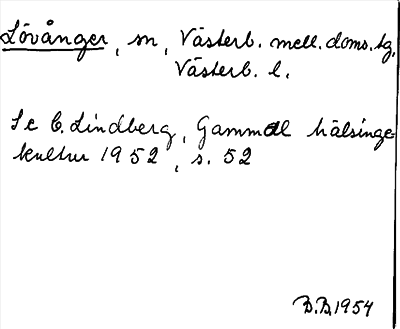 Lövånger, sn, Västerb. mell. doms.sg,
Västerb. l.
Se C. Lindberg, Gammal hälsinge-
kultur 1952, s. 52
B.B.1954